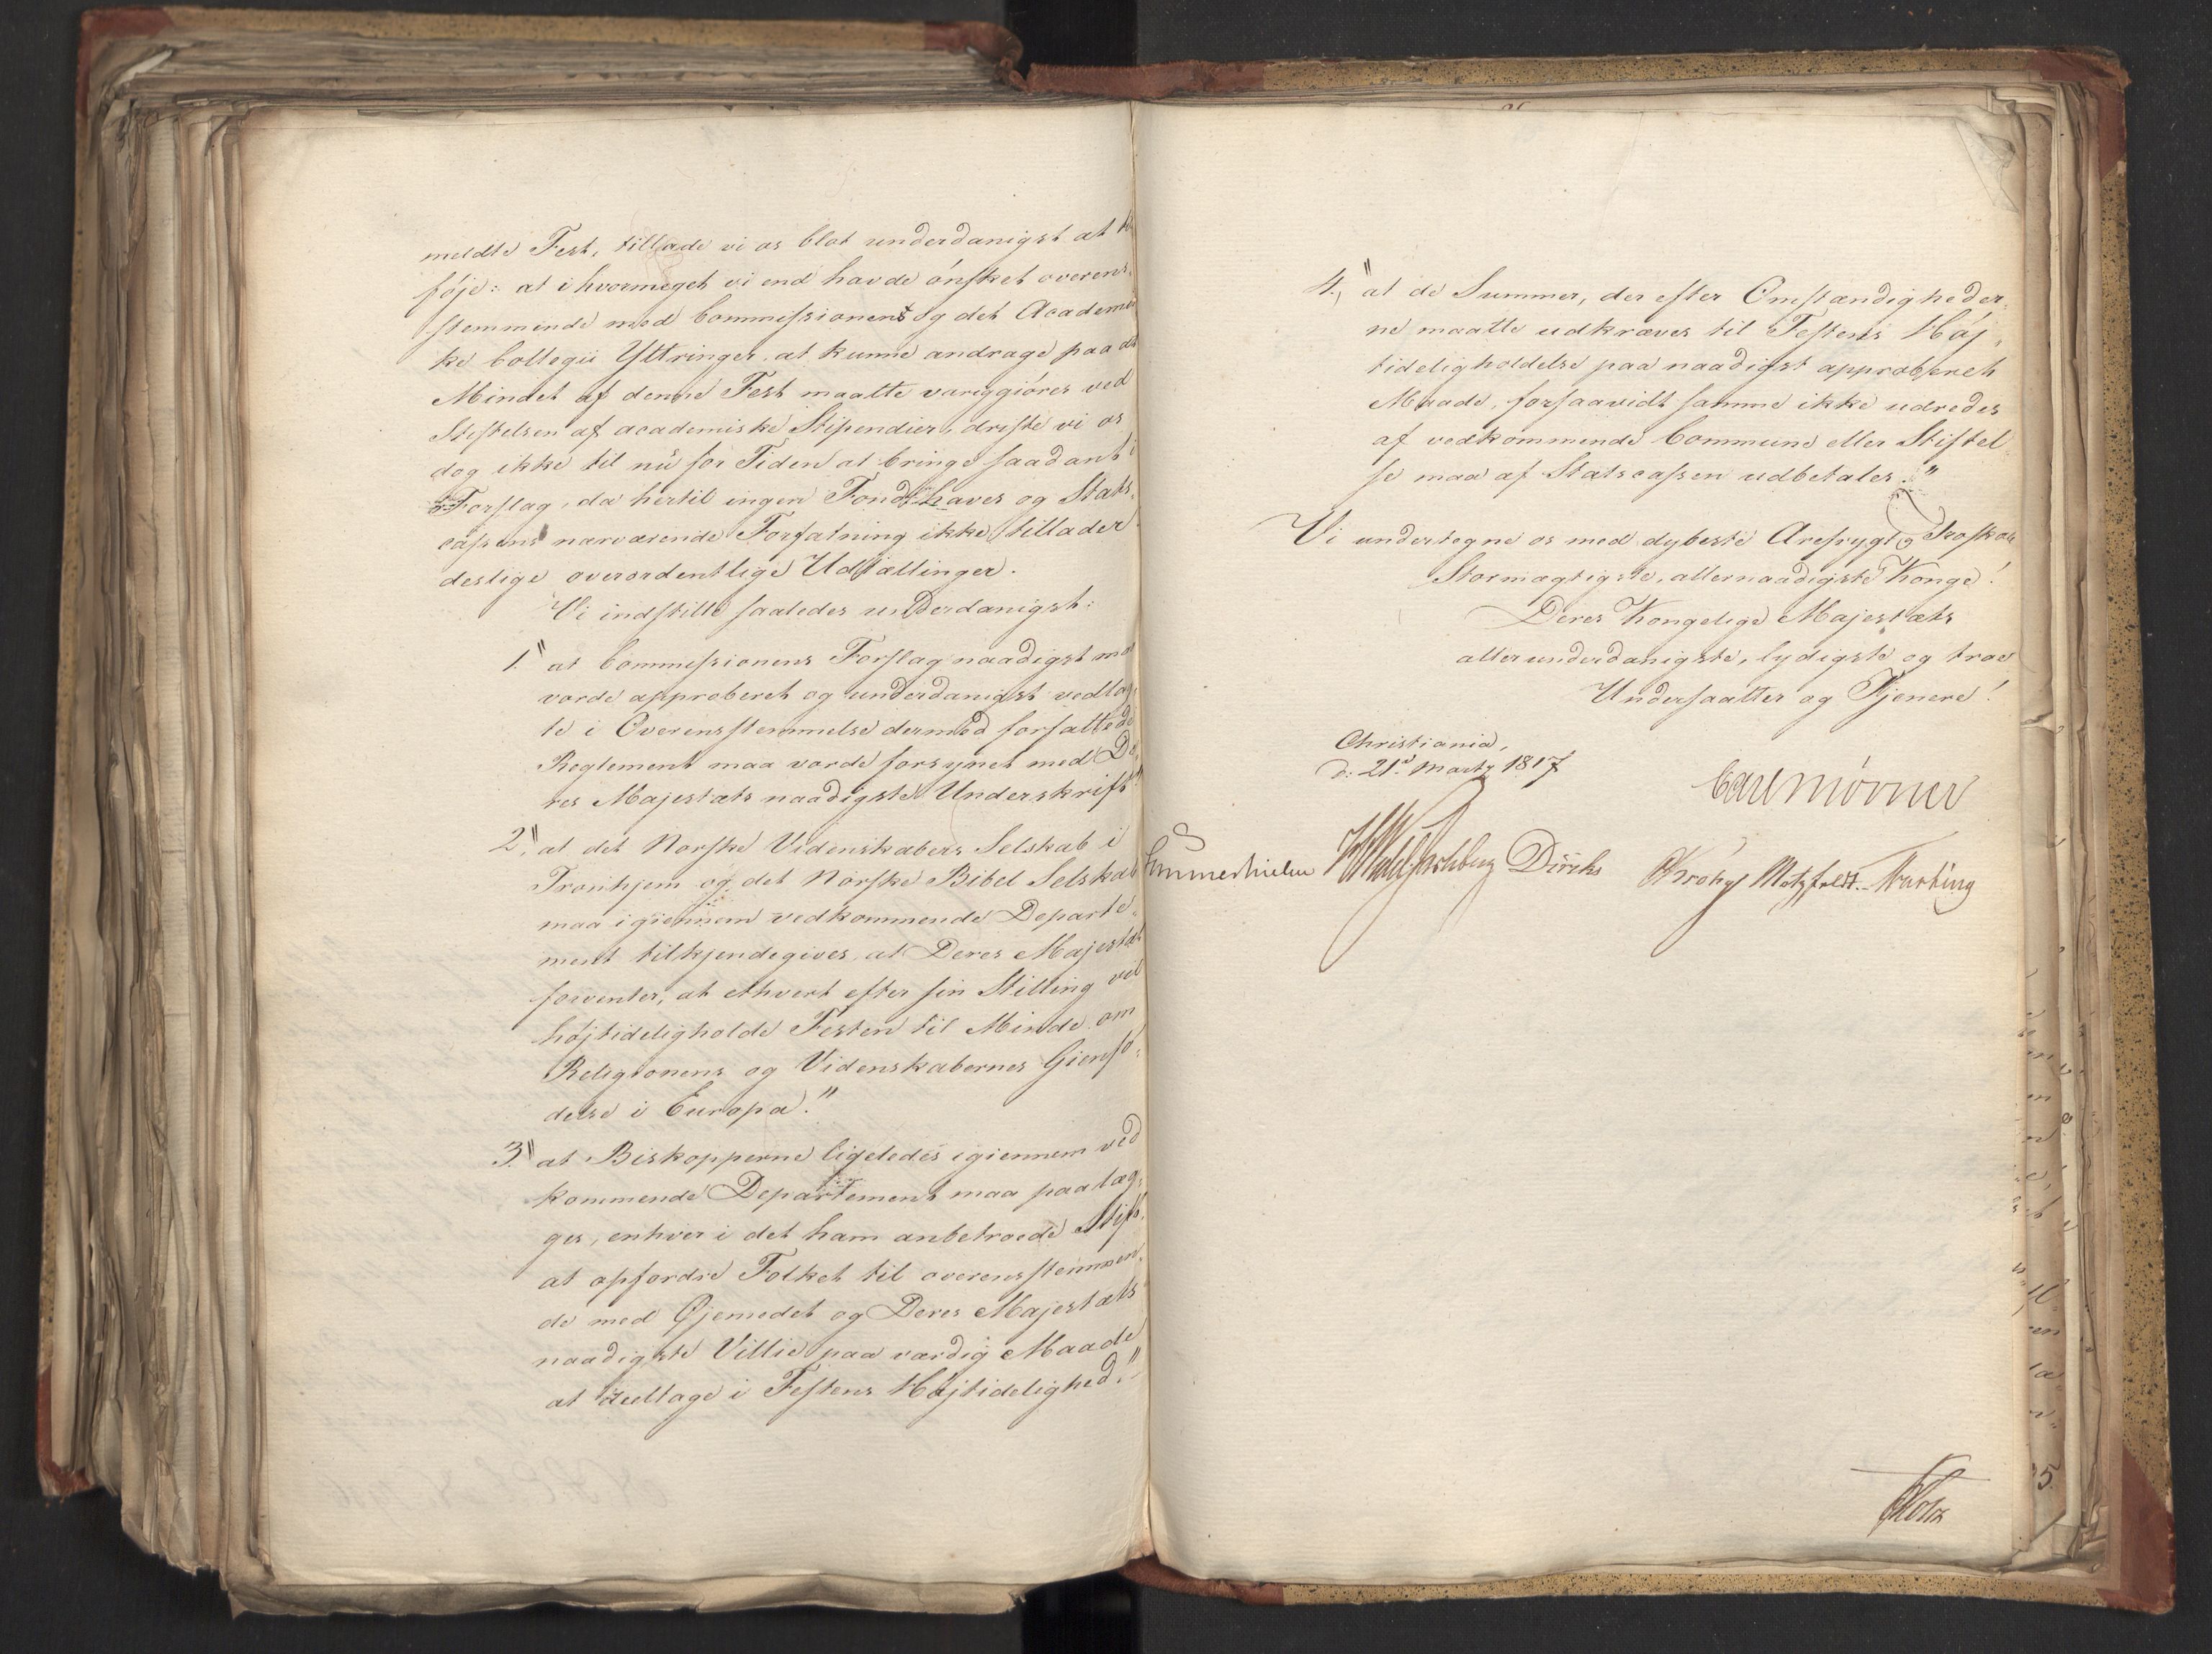 meldte Fest, tillade vi os blot underdanigst at
föje: at i hvormeget vi end havde önsket overens-
stemmende med Commissionens og det Academis
ke Collegii Yttringer, at kunne andrage paa at
Mindet af denne Fest maatte variggiöres ved
Stiftelsen af academiske Stipendier, driste vi os
dog ikke til nu for Tiden at bringe saadant i
Forslag, da hertil ingen Fond haves og Stats-
cassens nærværende Forfatning ikke tillader
deslige overordentlige Udtællinger.
Vi indstille saaledes underdanigst:
1." at Commissionens Forslag naadigst maa
vorde approberet og underdanigst vedlag-
te i Overensstemmelse dermed forfattede
Reglement maa vorde forsynet med De-
res Majestæts naadigste Underskrift"
2." at det Norske Videnskabers Selskab i
Tronhjem og det Norske Bibel Selskab
maa igiennem vedkommende Departe-
ment tilkjendegives, at Deres Majestæt
forventer, at ethvert efter sin Stilling vil
höjtideligholde Festen til Minde om
Religionens og Videnskabernes Gienfö-
delse i Europa."
3." at Biskopperne ligeledes igiennem ved
kommende Departement maa paalæg-
ges, enhver i det ham anbetroede Stift,
at opfordre Folket til overensstemmen-
de med Øjemedet og Deres Majestæts
naadigste Villie paa værdig Maade
at deeltage i Festens Höjtidelighed."
4." at de Summer, der efter Omstændigheder-
ne maatte udkræves til Festens Höj-
tideligholdelse paa naadigst approberet
Maade, forsaavidt samme ikke udredes
af vedkommende Commune eller Stiftel
se maa af Statscassen udbetales."
Vi undertegne os med dybeste Ærefrygt og Troskab
Stormægtigste, allernaadigste Konge!
Deres Kongelige Majestæts
allerunderdanigste, lydigste og troe
Undersaatter og Tjenere!
Christiania,
d: 21d. Martz 1817
Carl Mörner
Sommerhielm Diriks Krohg Motzfeldt.
Holst